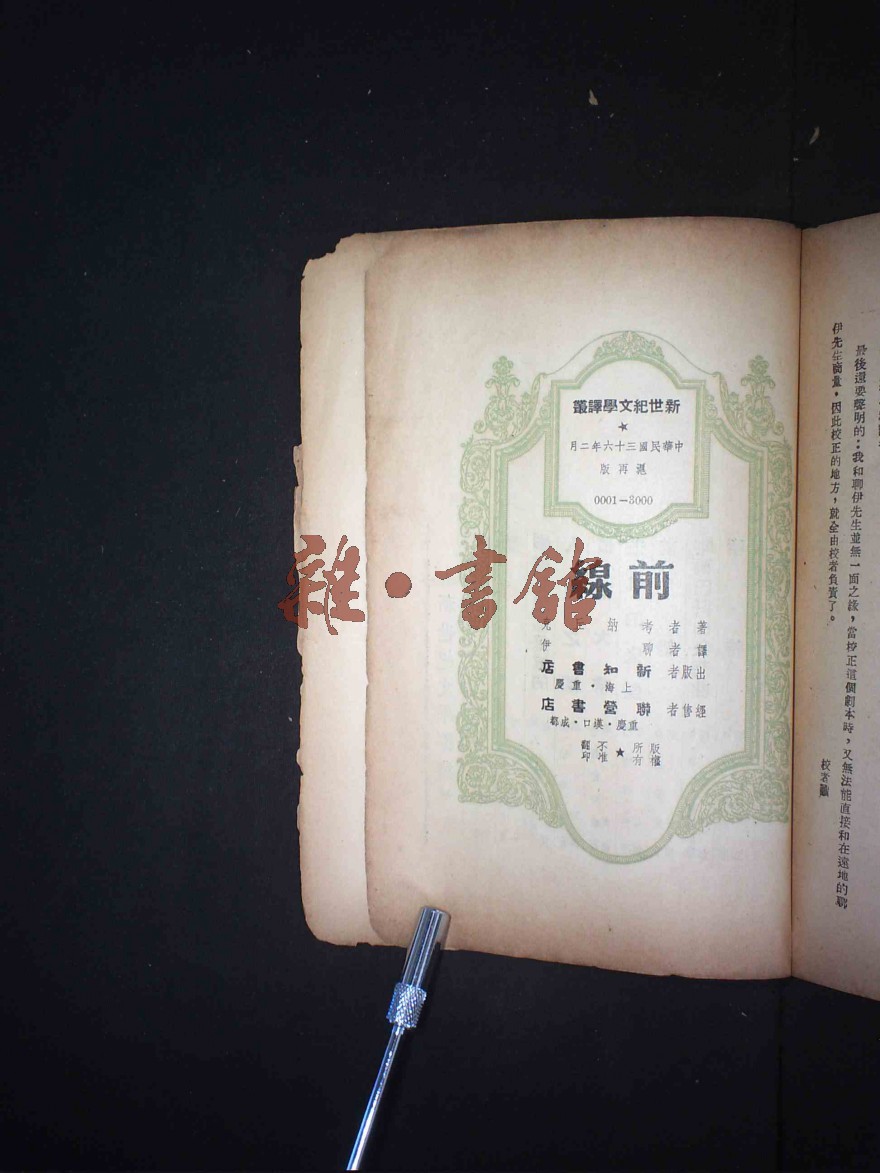 最後還要聲明的：我和聊伊先生並無一面之緣，當校正這個劇本時，又無法能直接和在遠地的聊
伊先生商量，因此校正的地方，就全由校者負責了。
校者識
新世紀文學譯叢
★
中華民國三十六年二月
滬再版
0001—3000
前線
著者 考納 克
譯者 聊伊
出版者 新知書店
上海・重慶
經售者 聯營書店
重慶・漢口・成都
版權所有★不准翻印
雜・書館